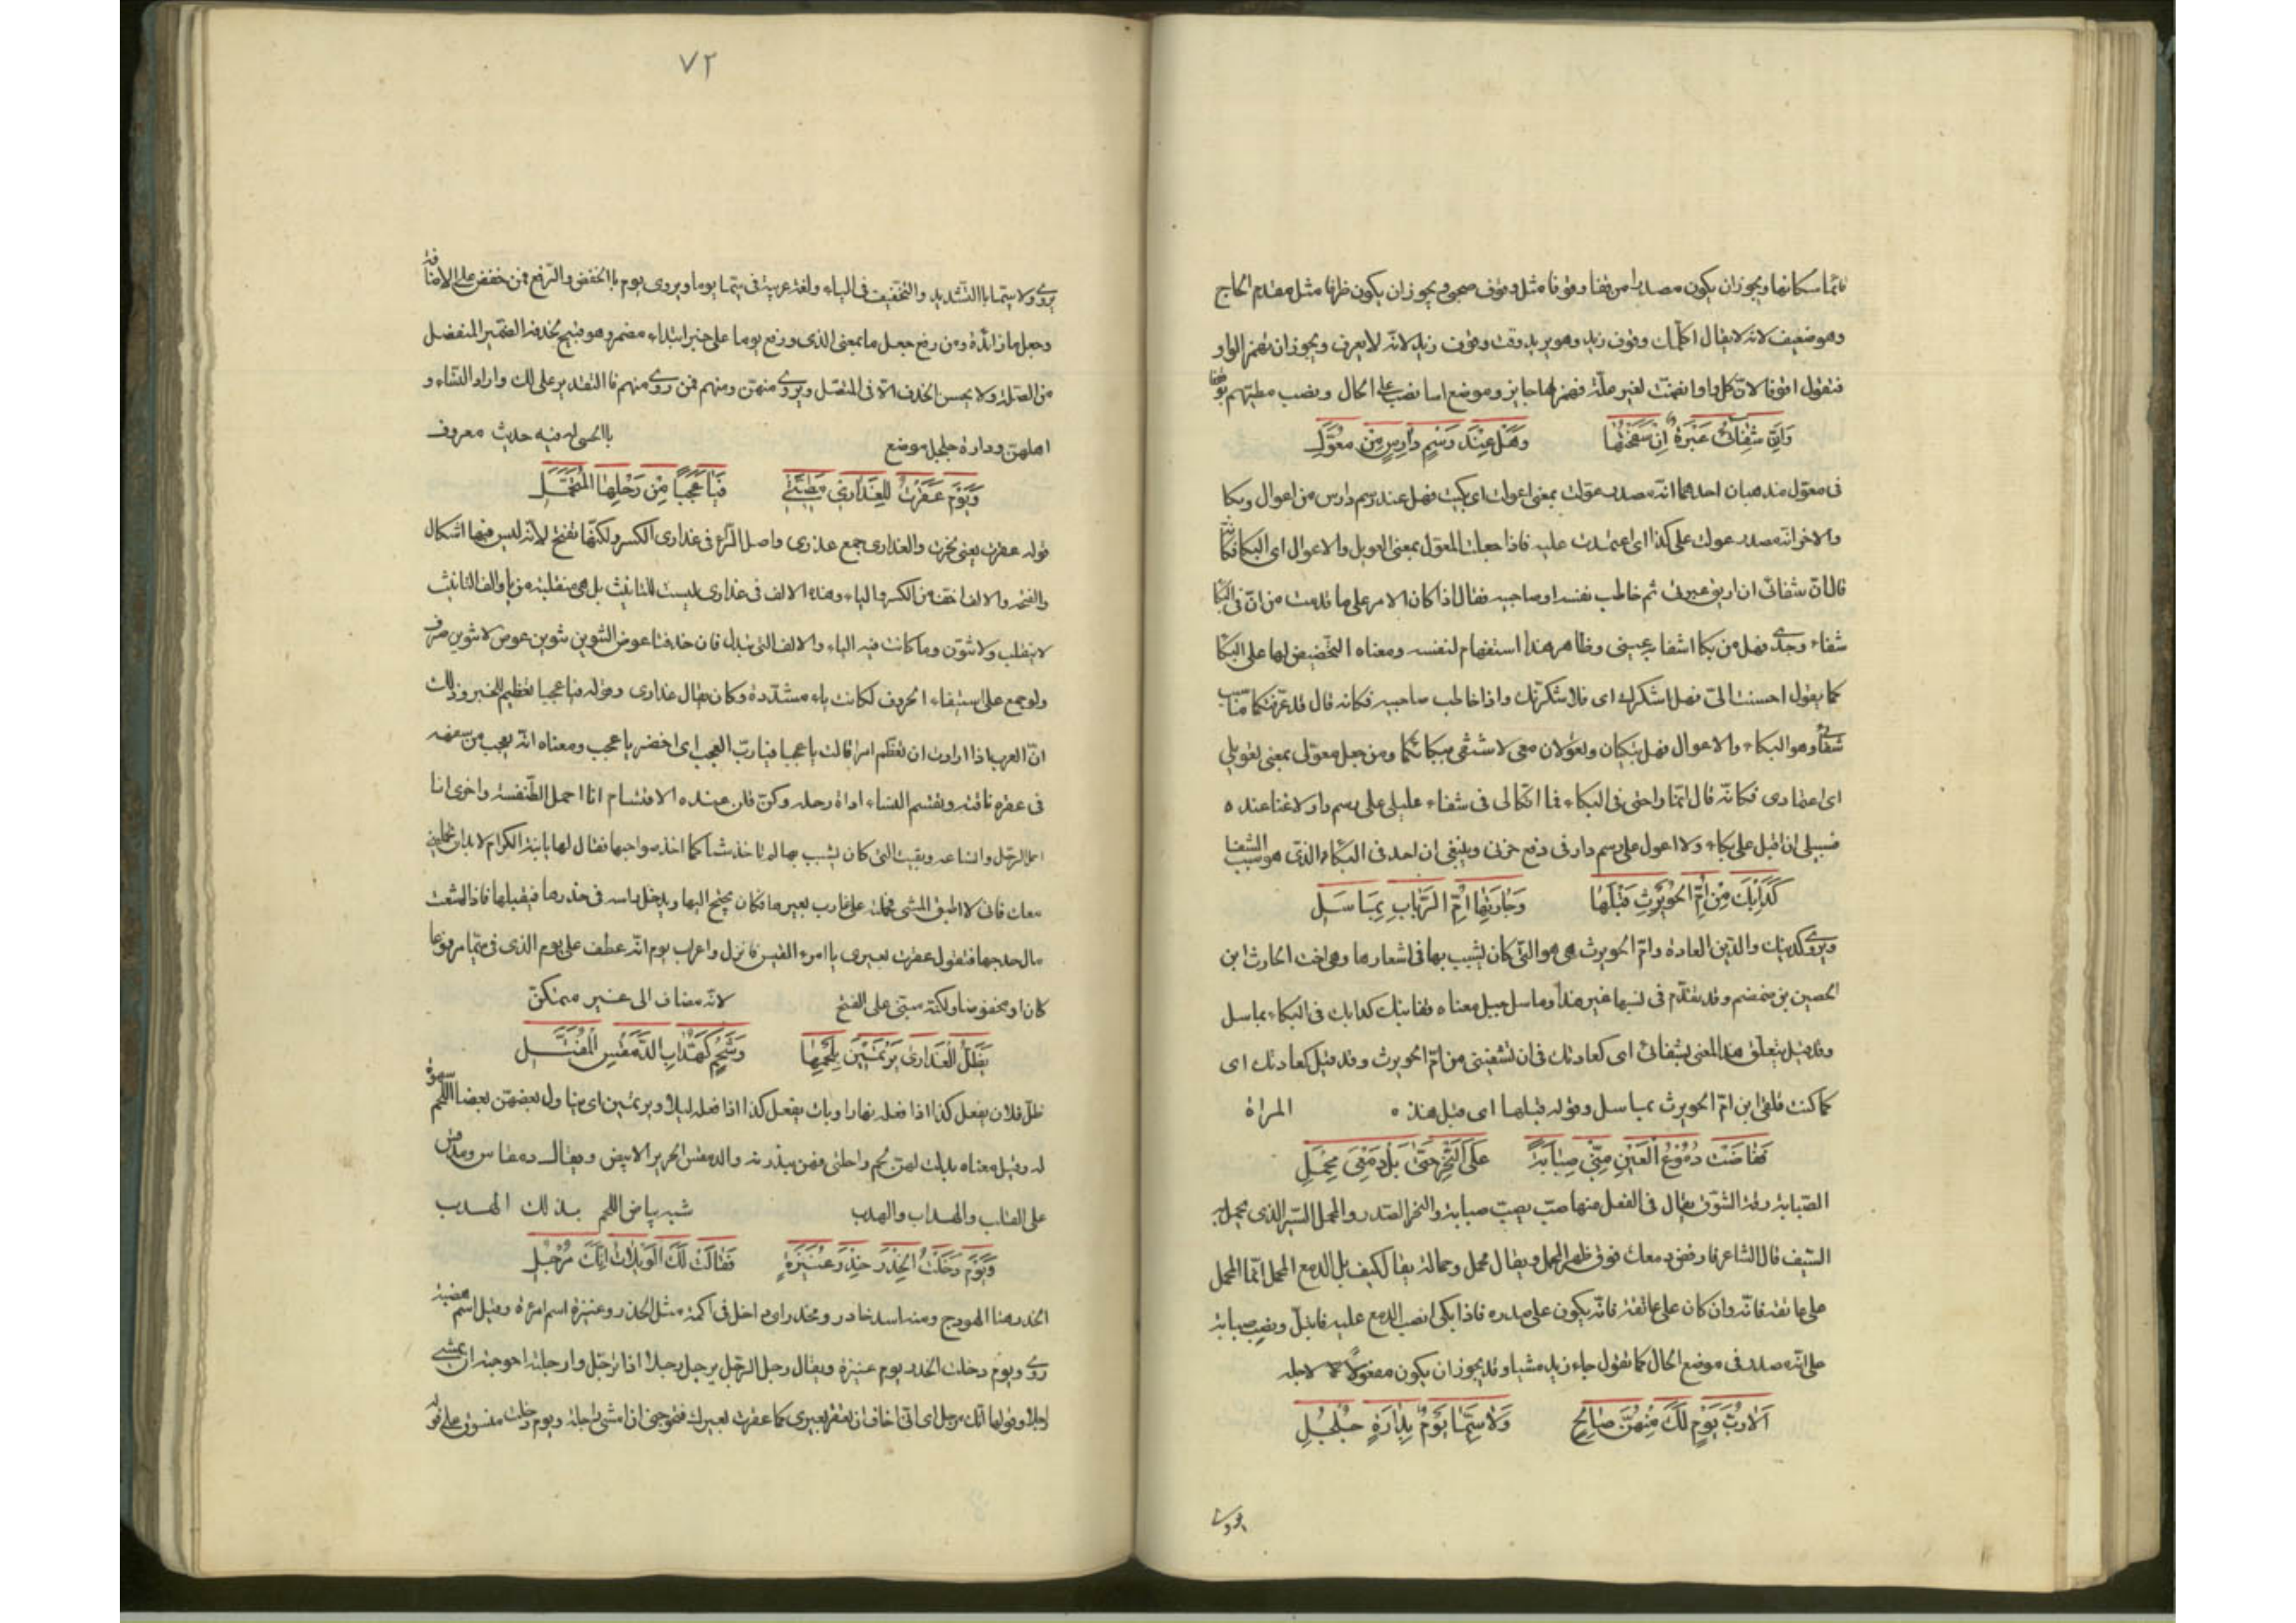 قائما سكانها ويجوز ان يكون مصدرا من وقفا وقوفا مثل وقوف صحبي ويجوز ان يكون ظرفا مثل مقدم الحاج
وهو ضعيف لانه لا يقال اكلمك وقوف زيد وهو يريد وقت وقوف زيد لانه لا يعرف ويجوز ان تهمز الواو
فتقول اقوفا لان كل واو انضمت لغير علة فهمزها جايز وموضع اسا نصب على الحال ونصب مطيهم بوقوفا
وَاِنَّ شِفَائي عَبْرَةٌ اِنْ سَفَحْتُهَا وَهَلْ عِنْدَ رَسْمٍ دَارِسٍ مِنْ مُعَوَّلِ
فى معوّل مذهبان احدهما انه مصدر عولت بمعنى اعولت اى بكيت فهل عند رسم دارس من اعوال وبكا
والاخر انه مصدر عولت على كذا اى اعتمدت عليه فاذا جعلت المعول بمعنى العويل والاعوال اى البكا فكانه
قال ان شفائى ان اريق عبرتى ثم خاطب نفسه او صاحبيه فقال اذا كان الامر على ما قدمت من ان فى البكا
شفاء وجدى فهل من بكا اشفا به عينى وظاهر هذا استفهام لنفسه ومعناه التحضيض لها على البكا
كما يقول احسنت الىّ فهل اشكرك اى فلاشكرنك واذا خاطب صاحبيه فكانه قال قد عرفتكما سبب
شفائى وهو البكاء والاعوال فهل تبكيان وتعولان معى لاشتفى ببكائكما ومن جعل معولى بمعنى تعويلى
اى اعتمادى فكانه قال انما راحتى فى البكاء فما اتكالى فى شفاء غليلى على رسم دار ولا غنا عنده ه
فسبيلى ان اقبل على بكاء ولا اعول على رسم دار فى دفع حزنى وينبغى ان اجد فى البكاء الذى هو سبب الشفا
كَدَأْبِكَ مِنْ اُمِّ الْحُوَيْرِثِ قَبْلَهَا وَجَارَتِهَا اُمِّ الرَّبَابِ بِمَاسَلِ
ويروى كدينك والدين العادة وام الحويرث هى هو التى كان يشبب بها فى اشعارها وهى اخت الحارث ابن
الحصين بن ضمضم وقد تقدم فى نسبها غير هذا وماسل جبل معناه قفا نبك كدابك فى البكاء بماسل
وقد قيل يتعلق هذا المعنى بشفائى اى كعادتك فى ان تشفينى من ام الحويرث وقد قيل كعادتك اى
كما كنت تلقى ابن ام الحويرث بماسل وقوله قبلها اى قبل هذه ه المراة
فَفَاضَتْ دُمُوْعُ الْعَيْنِ مِنِّي صَبَابَةً عَلَى النَّحْرِ حَتَّى بَلَّ دَمْعِىَ مِحْمَلِي
الصبابة رقة الشوق يقال فى الفعل منها صب يصب صبابة والنحر الصدر والمحمل السير الذى يحمل به
السيف قال الشاعر فارفض دمعك فوق ظهر المحمل ويقال محمل وحمالة يقال كيف بل الدمع المحمل انما المحمل
على عاتقه فانه وان كان على عاتقه فانه يكون على صدره فاذا بكى انصب الدمع عليه فابتل ونصب صبابة
على انه مصدر فى موضع الحال كما تقول جاء زيد مشيا وقد يجوز ان يكون مفعولا لاجله
اَلَا رُبَّ يَوْمٍ لَكَ مِنْهُنَّ صَالِحٍ وَلَا سِيَّمَا يَوْمٌ بِدَارَةِ جُلْجُلِ
يروى
٧٢
يروى ولا سيما باالتشديد والتخفيف فى الياء ولغة عربية فى سيما يوما ويروى يوم باالخفض والرفع فمن خفض على الاضافة
وجعل ما زائدة ومن رفع جعل ما بمعنى الذى ورفع يوما على خبر ابتداء مضمر وهو قبيح لحذفه الضمير المنفصل
من الصلة ولا يحسن الحذف الا فى المتصل ويروى منهن ومنهم فمن روى منهم فاالتقدير على لك واراد النساء و
اهلهن ودارة جلجل موضع باالحمى له فيه حديث معروف
وَيَوْمَ عَقَرْتُ لِلْعَذَارَى مَطِيَّتِي فَيَا عَجَبًا مِنْ رَحْلِهَا الْمُتَحَمَّلِ
قوله عقرت يعنى نحرت والعذارى جمع عذرى واصل الراء فى عذارى الكسر ولكنها تفتح لانه ليس فيها اشكال
والفتحة والالف اخف من الكسر والياء وهذه الالف فى عذارى ليست للتانيث بل هى منقلبة من ياء والف التانيث
لا ينقلب ولا تنون وما كانت فيه الياء والالف التى تبدل فان حذفتا عوض التنوين تنوين عوض لا تنوين صرف
ولو جمع على استيفاء الحروف لكانت ياء مشددة وكان يقال عذارى وقوله فيا عجبا تعظيم للخبر وذلك
ان العرب اذا ارادت ان تعظم امرا قالت يا عجبا فيا رب العجب اى احضر يا عجب ومعناه انه يعجب من سفهه
فى عقره ناقته وتقتسم النساء اداة رحله وكن قلن عند هذه الاقتسام انا احمل الطنفسة واخرى انا
احمل الرحل وانساعه وبقيت التى كان يشبب بها لم تاخذ شيا كما اخذ صواحبها فقال لها يا ابنة الكرام لا بد ان تحملينى
معك فانى لا اطيق المشى فحملته على غارب بعيرها فكان يجنح اليها ويدخل راسه فى خدرها فيقبلها فاذا امتنعت
مال حدجها فتقول عقرت بعيرى يا امرء القيس فانزل واعراب يوم انه عطف على يوم الذى فى سيما مرفوعا
كان او مخفوضا ولكنه مبنى على الفتح لانه مضاف الى غير متمكن
يَظَلُّ الْعَذَارَى يَرْتَمِيْنَ بِلَحْمِهَا وَشَحْمٍ كَهُدَّابِ الدِّمَقْسِ الْمُفَتَّلِ
ظل فلان يفعل كذا اذا فعله نهارا وبات يفعل كذا اذا فعله ليلا ويرتمين اى يناول بعضهن بعضا اللحم سهوة
له وقيل معناه بدلت لهن لحم راحلتى فهن يبذرنه والدمقس الحرير الابيض ويقال دمقاس ومدقس
على القلب والهداب والهدب شبه بياض اللحم بذلك الهدب
وَيَوْمَ دَخَلْتُ الْخِدْرَ خِدْرَ عُنَيْزَةٍ فَقَالَتْ لَكَ الْوَيْلَاتُ اِنَّكَ مُرْجِلِي
الخدر هنا الهودج ومنه اسد خادر ومخدر اى داخل فى اكمة مثل الخدر وعنيزة اسم امرءة وقيل اسم هضبة
روى ويوم دخلت الخدر يوم عنيزة ويقال رجل الرجل يرجل رجلا اذا ترجل وارجلته احوجته ان يمشى
راجلا وقولها انك مرجلى اى انى اخاف ان تعقر بعيرى كما عقرت بعيرك فتحوجنى ان امشى راجلة ويوم دخلت منسوق على قوله